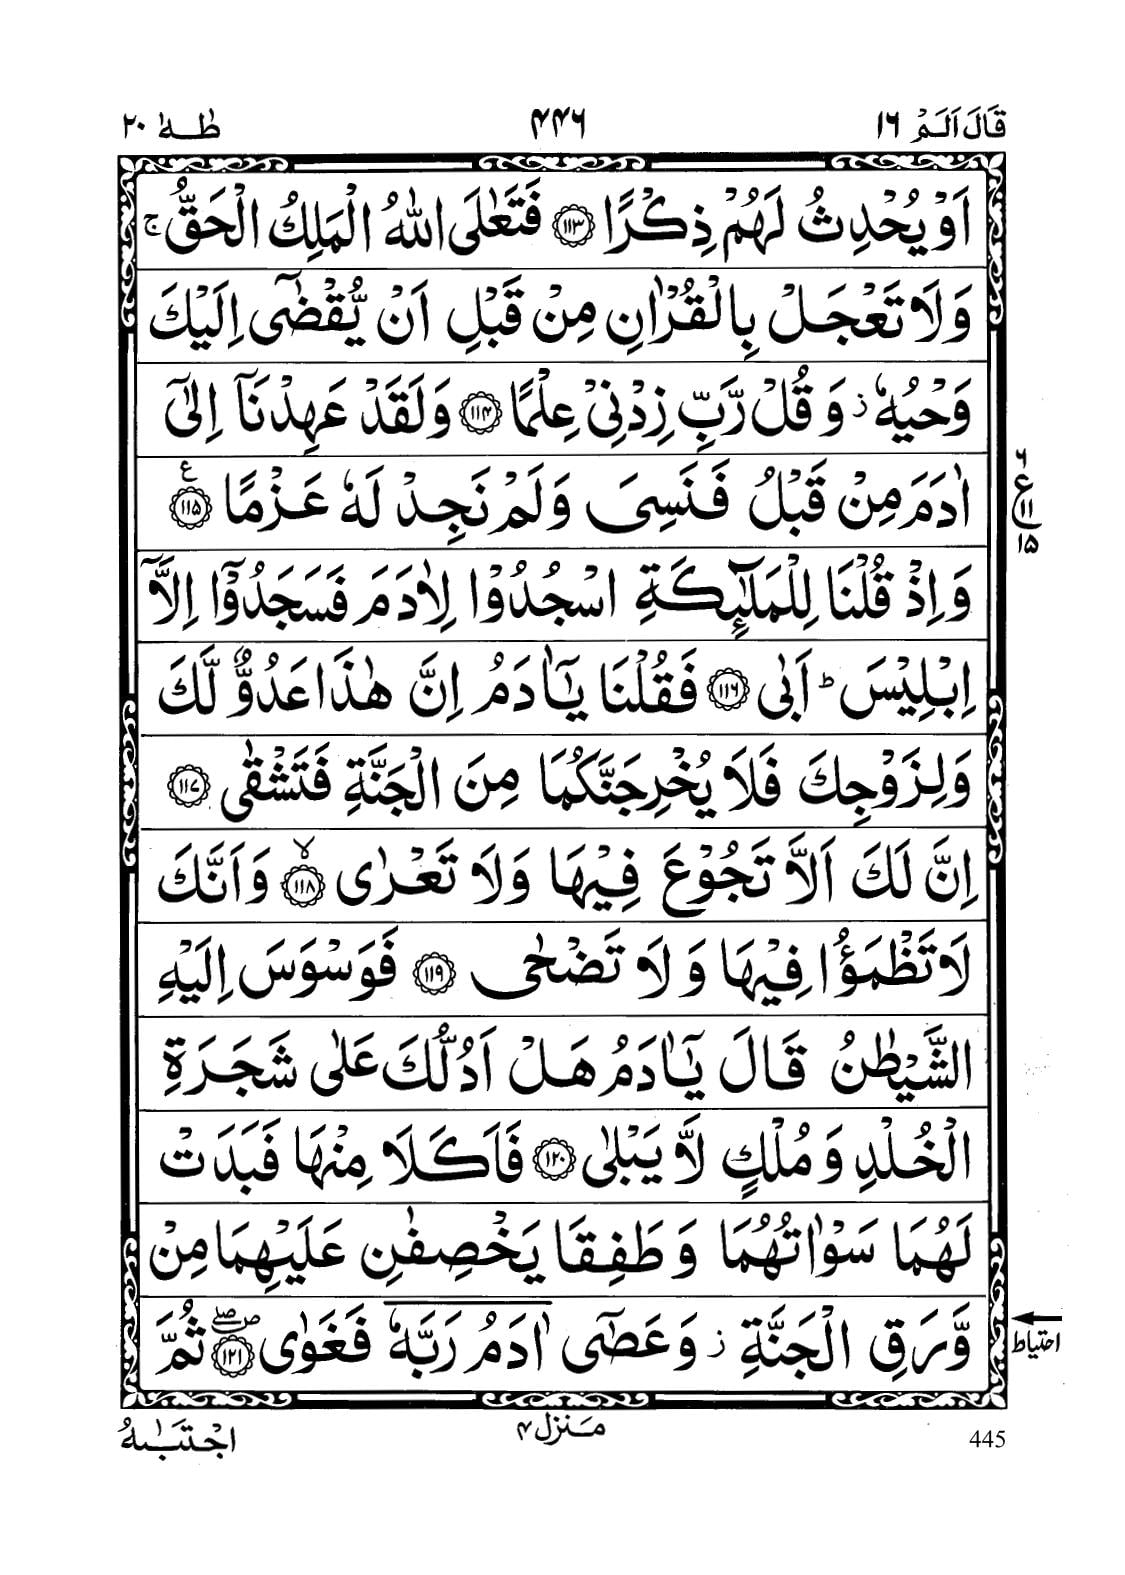 قَالَ اَلَمْ ١٦ ۴۴٦ طٰهٰ ٢٠
اَوْ يُحْدِثُ لَهُمْ ذِكْرًا ﴿١١٣﴾ فَتَعٰلَى اللّٰهُ الْمَلِكُ الْحَقُّ ۚ
وَلَا تَعْجَلْ بِالْقُرْاٰنِ مِنْ قَبْلِ اَنْ يُّقْضٰۤى اِلَيْكَ
وَحْيُهٗ ز وَقُلْ رَّبِّ زِدْنِيْ عِلْمًا ﴿١١۴﴾ وَلَقَدْ عَهِدْنَاۤ اِلٰۤى
اٰدَمَ مِنْ قَبْلُ فَنَسِيَ وَلَمْ نَجِدْ لَهٗ عَزْمًا ﴿١١۵﴾ ع
٦
ع
١١
١۵
وَاِذْ قُلْنَا لِلْمَلٰٓئِكَةِ اسْجُدُوْا لِاٰدَمَ فَسَجَدُوْۤا اِلَّاۤ
اِبْلِيْسَ ؕ اَبٰى ﴿١١٦﴾ فَقُلْنَا يٰۤاٰدَمُ اِنَّ هٰذَا عَدُوٌّ لَّكَ
وَلِزَوْجِكَ فَلَا يُخْرِجَنَّكُمَا مِنَ الْجَنَّةِ فَتَشْقٰى ﴿١١٧﴾
اِنَّ لَكَ اَلَّا تَجُوْعَ فِيْهَا وَلَا تَعْرٰى ﴿١١٨﴾ ۙ وَاَنَّكَ
لَا تَظْمَؤُا فِيْهَا وَلَا تَضْحٰى ﴿١١٩﴾ فَوَسْوَسَ اِلَيْهِ
الشَّيْطٰنُ قَالَ يٰۤاٰدَمُ هَلْ اَدُلُّكَ عَلٰى شَجَرَةِ
الْخُلْدِ وَمُلْكٍ لَّا يَبْلٰى ﴿١٢٠﴾ فَاَكَلَا مِنْهَا فَبَدَتْ
لَهُمَا سَوْاٰتُهُمَا وَطَفِقَا يَخْصِفٰنِ عَلَيْهِمَا مِنْ
وَّرَقِ الْجَنَّةِ ز وَعَصٰۤى اٰدَمُ رَبَّهٗ فَغَوٰى ﴿١٢١﴾ ۖ ثُمَّ
احتیاط
445 مَنزل ۴ اجْتَبٰىهُ